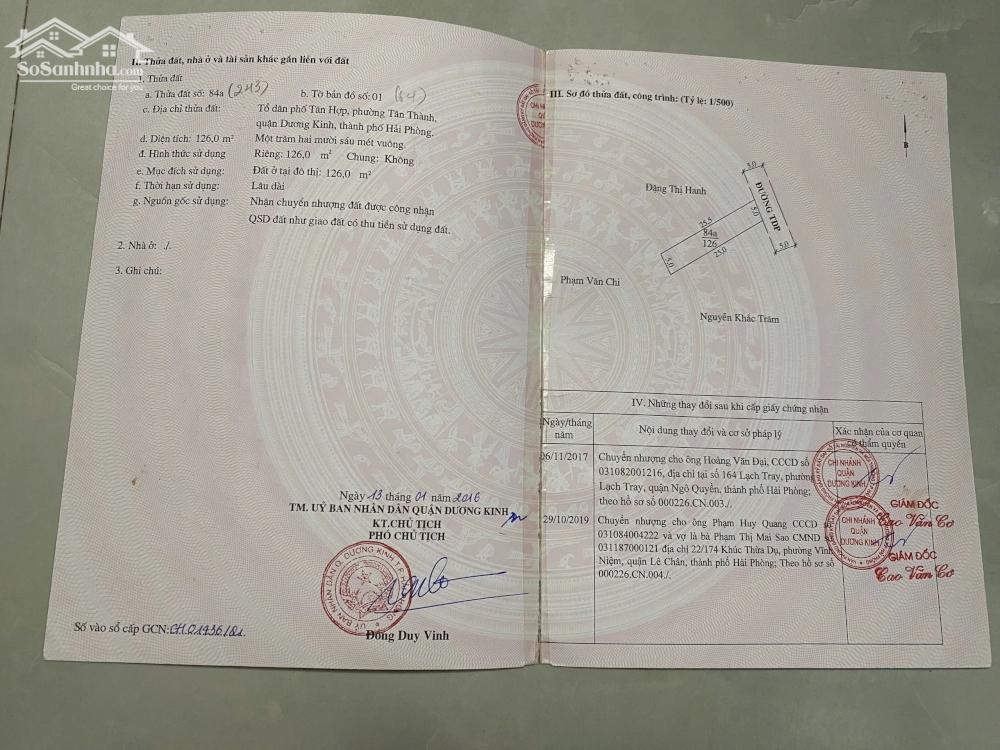 SoSanhnha.com
Great choice for you
II. Thửa đất, nhà ở và tài sản khác gắn liền với đất
1. Thửa đất
a. Thửa đất số: 84a (243) b. Tờ bản đồ số: 01 (64)
c. Địa chỉ thửa đất: Tổ dân phố Tân Hợp, phường Tân Thành,
quận Dương Kinh, thành phố Hải Phòng.
d. Diện tích: 126,0 m² Một trăm hai mươi sáu mét vuông.
đ. Hình thức sử dụng Riêng: 126,0 m² Chung: Không
e. Mục đích sử dụng: Đất ở tại đô thị: 126,0 m²
f. Thời hạn sử dụng: Lâu dài
g. Nguồn gốc sử dụng: Nhận chuyển nhượng đất được công nhận
QSD đất như giao đất có thu tiền sử dụng đất.
2. Nhà ở: ./.
3. Ghi chú:
Ngày 13 tháng 01 năm 2016
TM. UỶ BAN NHÂN DÂN QUẬN DƯƠNG KINH
KT.CHỦ TỊCH
PHÓ CHỦ TỊCH
Đồng Duy Vinh
Số vào sổ cấp GCN: CH.01936/Q1.
III. Sơ đồ thửa đất, công trình: (Tỷ lệ: 1/500)
CHI NHÁNH
QUẬN
DƯƠNG
B
Đặng Thị Hanh
5,0
ĐƯỜNG TDP
25,5
5,0
84a
126
5,0
25,0
5,0
Phạm Văn Chi
Nguyễn Khắc Trăm
IV. Những thay đổi sau khi cấp giấy chứng nhận
Ngày/tháng năm
Nội dung thay đổi và cơ sở pháp lý
Xác nhận của cơ quan
có thẩm quyền
06/11/2017
Chuyển nhượng cho ông Hoàng Văn Đại, CCCD số
031082001216, địa chỉ tại số 164 Lạch Tray, phường
Lạch Tray, quận Ngô Quyền, thành phố Hải Phòng;
theo hồ sơ số 000226.CN.003./.
CHI NHÁNH
QUẬN
DƯƠNG KINH
GIÁM ĐỐC
Cao Văn Cơ
29/10/2019
Chuyển nhượng cho ông Phạm Huy Quang CCCD số
031084004222 và vợ là bà Phạm Thị Mai Sao CMND
031187000121 địa chỉ 22/174 Khúc Thừa Dụ, phường Vĩnh
Niệm, quận Lê Chân, thành phố Hải Phòng; Theo hồ sơ số
000226.CN.004./.
CHI NHÁNH
QUẬN
DƯƠNG KINH
GIÁM ĐỐC
Cao Văn Cơ